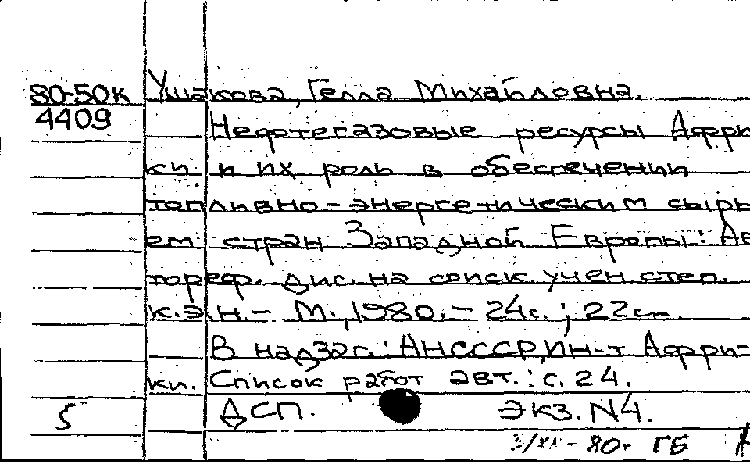 80-50к Ушакова, Гелла Михайловна.
4409 Нефтегазовые ресурсы Афри
ки и их роль в обеспечении
топливно-энергетическим сырь
ем стран Западной Европы: Ав
тореф. дис. на соиск. учен. степ.
к.э.н. - М., 1980. - 24 с.; 22 см
В надзаг.: АНСССР, Ин-т Афри-
ки. Список работ авт.: с. 24.
5 ДСП. Экз. N4.
80г ГБ